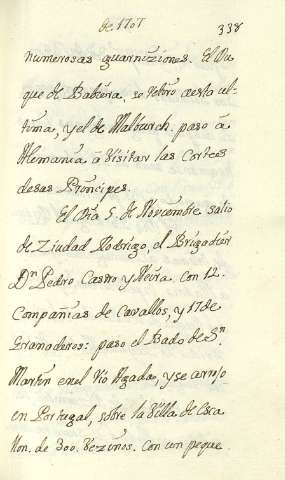 de 1707
338
numerosas guarniziones. El Du
que de Babiera, se retiró a esta ul-
tima, y el de Malburch. paso â
Alemania â Visitar las Cortes
de sus Principes.
El Dia 5. de Noviembre salio
de Ziudad Rodrigo, el Brigadier
Dn. Pedro Castro y Neira. con 12.
Compañias de Cavallos, y 17 de
Granaderos: paso el Bado de Sn.
Martin en el rio Agada, y se arrojo
en Portugal, sobre la Villa de Esca
lion. de 300. Vezinos. con un peque